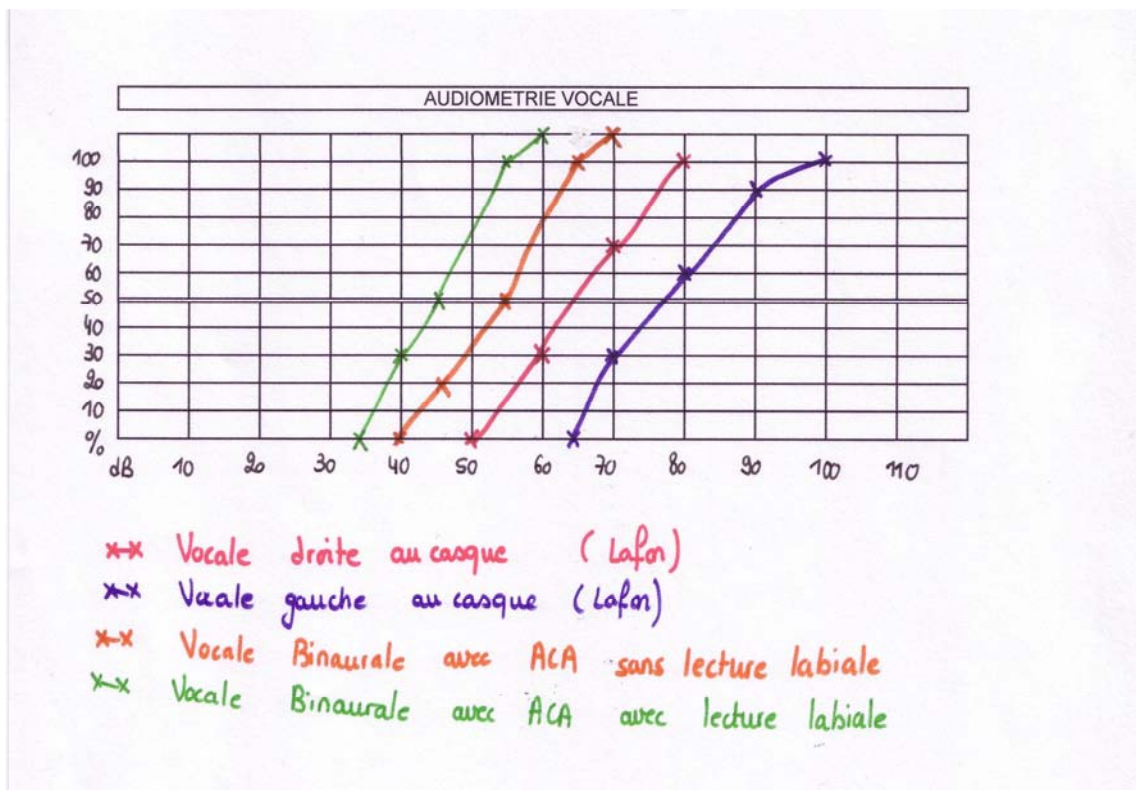 AUDIOMETRIE VOCALE
100
90
80
70
60
50
40
30
20
10
%
dB 10 20 30 40 50 60 70 80 90 100 110
x-x Vocale droite au casque (Lafon)
x-x Vocale gauche au casque (Lafon)
x-x Vocale Binaurale avec ACA sans lecture labiale
x-x Vocale Binaurale avec ACA avec lecture labiale